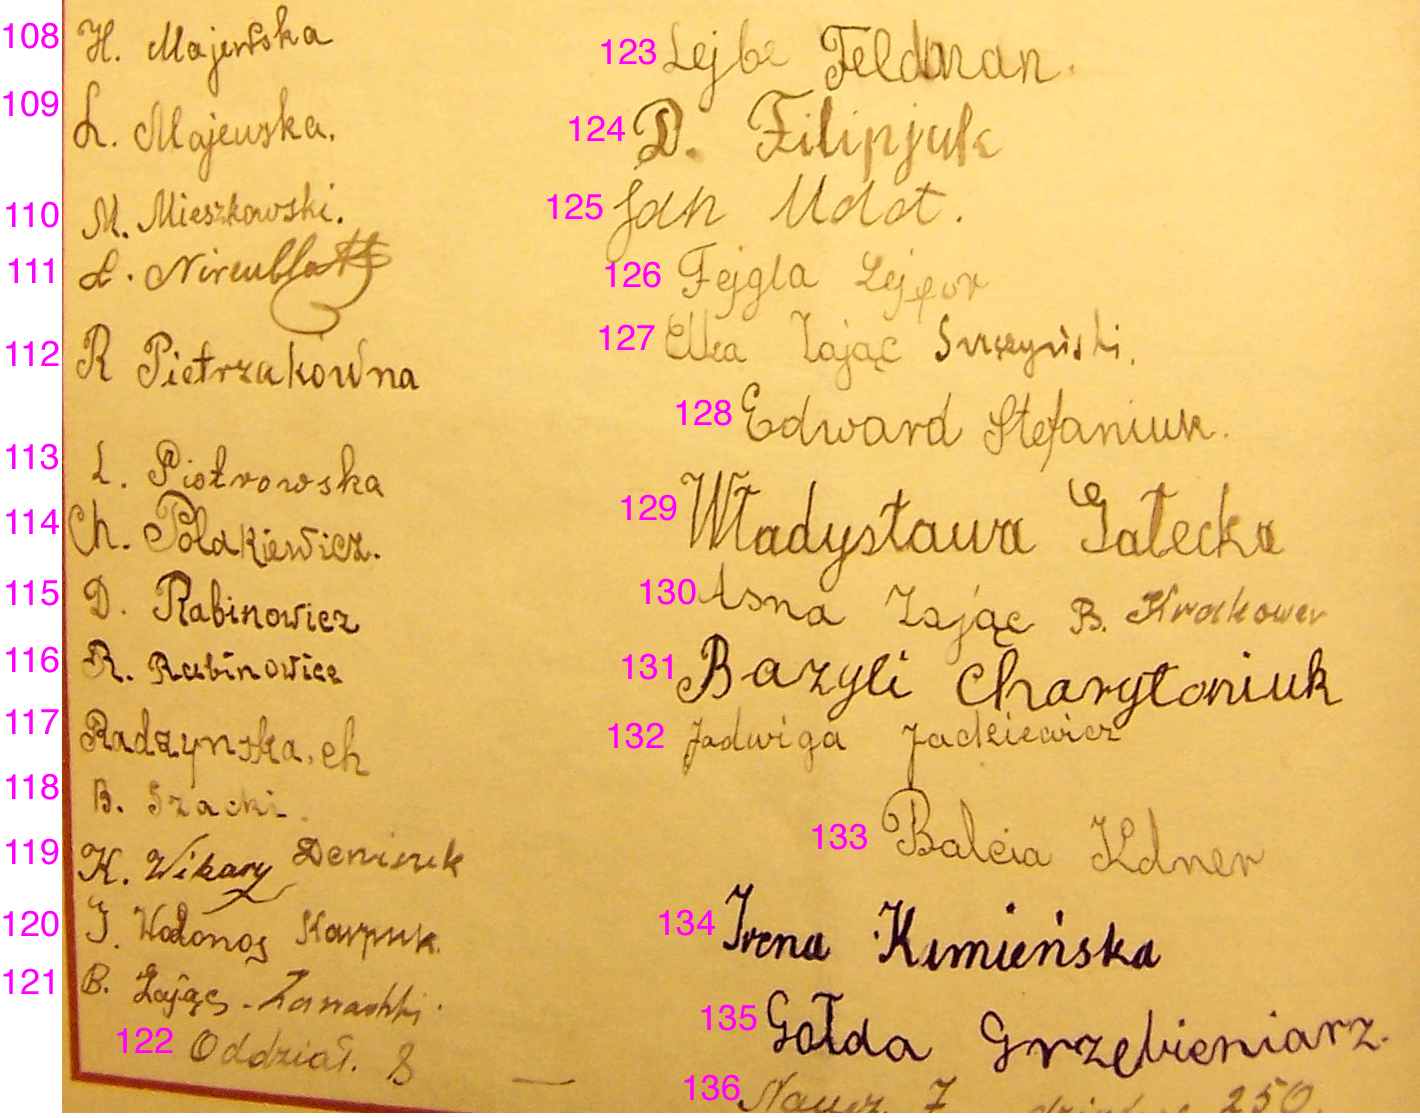 108 H. Majewska
109 L. Majewska.
110 M. Mieszkowski.
111 L. Nirenblatt
112 R Pietrzakówna
113 L. Piotrowska
114 Ch. Polakiewicz.
115 D. Rabinowicz
116 R. Rubinowicz
117 Radzynska. ch
118 B. Szacki.
119 K. Wikary Deniuk
120 J. Wodonos Karpuk.
121 B. Zając -
122 Oddział. 8 —
123 Lejbe Feldman.
124 D. Filipjuk
125 Jan Udot.
126 Fejgla Lejzor
127 Zając
128 Edward Stefaniuk.
129 Władysława Gałecka
130 Asna Zając B. Krakower
131 Bazyli Charytoniuk
132 Jadwiga Jackiewicz
133 Balcia Eldner
134 Irena Kimieńska
135 Gołda Grzebieniarz.
136 Naucz. 7 250.